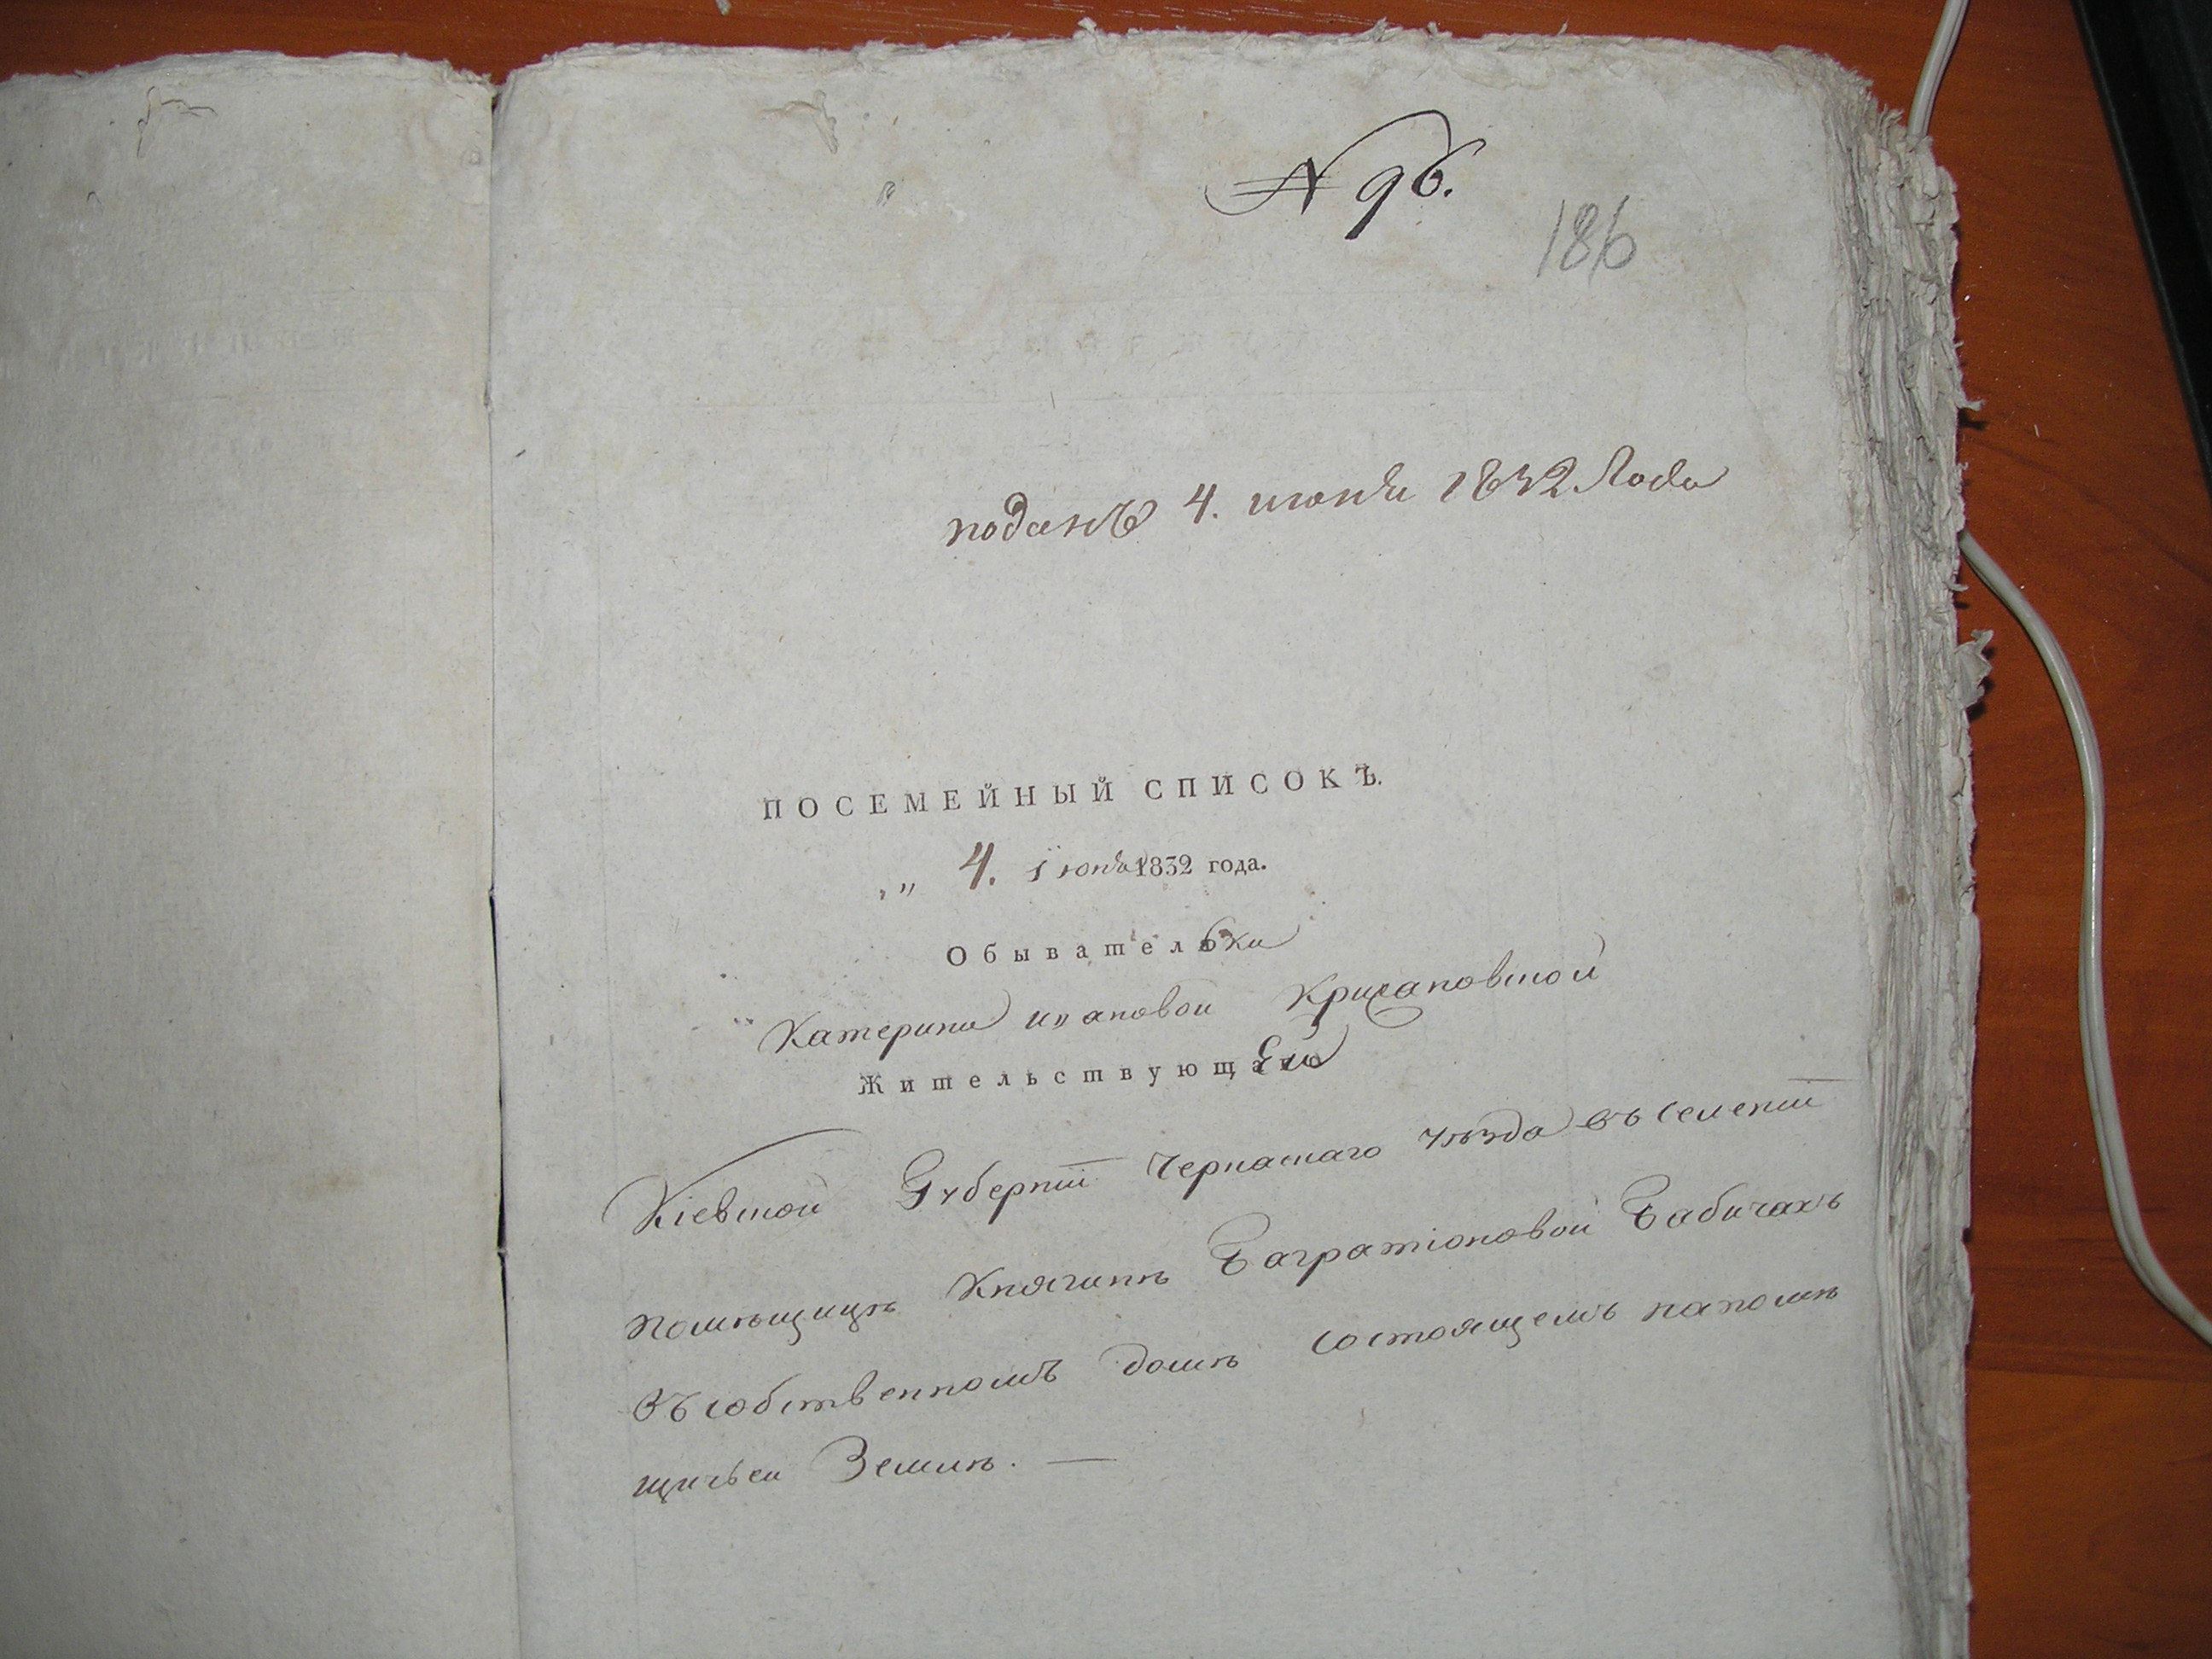 N 96.
186
поданъ 4. июня 1832 Года
ПОСЕМЕЙНЫЙ СПИСОКЪ.
„ „ 4. Iюня 1832 года.
Обывательки
Катерини ивановой
Жительствующей
Кіевской Губерніи Черкаскаго уѣзда въ селеніи
помѣщицѣ Княгинѣ Багратіоновой Бабичахъ
въ собственномъ домѣ состоящемъ на помѣ
щичьей Землѣ. —